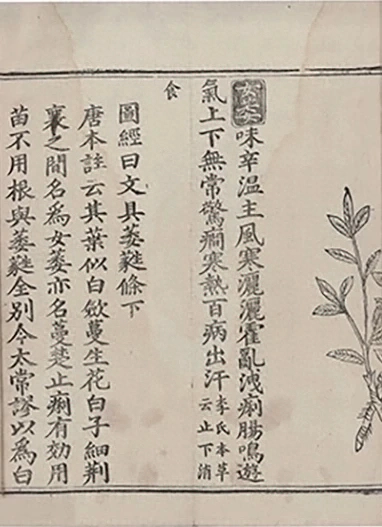 味辛溫主風寒灑灑霍亂洩痢腸鳴遊
氣上下無常驚癇寒熱百病出汗李氏本草云止下消
食
圖經曰文具萎蕤條下
唐本註云其葉似白歛蔓生花白子細荆
襄之間名爲女萎亦名蔓楚止痢有效用
苗不用根與萎蕤全別今太常謬以爲白